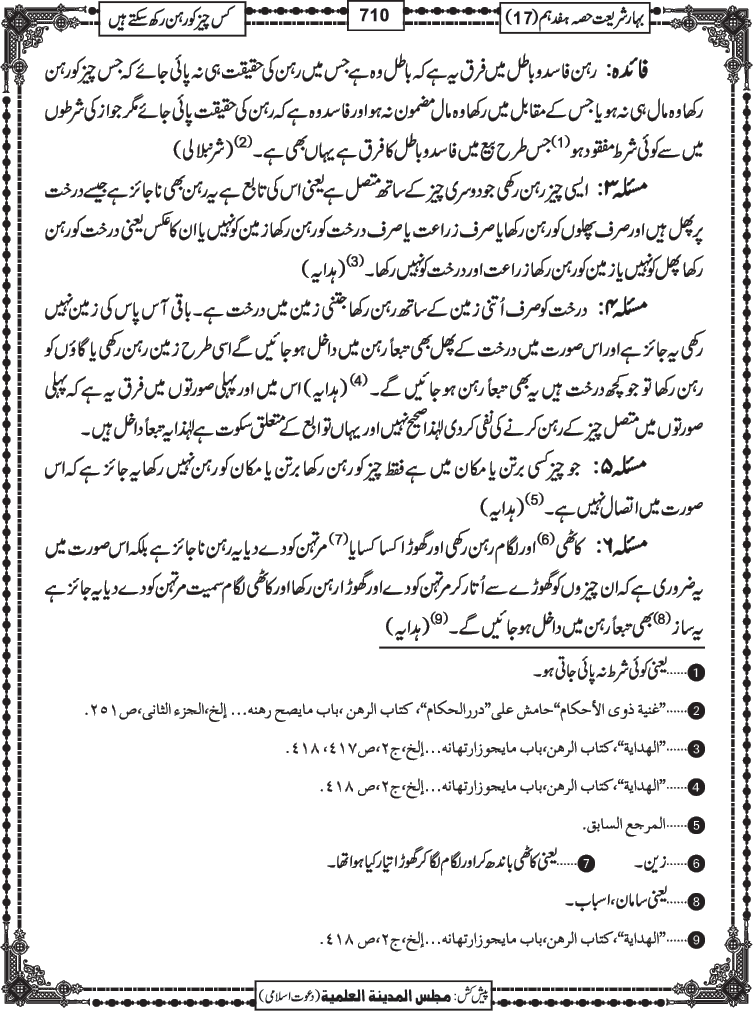 بہارِ شریعت حصہ ہفدہم (17)
710
کس چیز کو رہن رکھ سکتے ہیں
فائدہ: رہن فاسد و باطل میں فرق یہ ہے کہ باطل وہ ہے جس میں رہن کی حقیقت ہی نہ پائی جائے کہ جس چیز کو رہن
رکھا وہ مال ہی نہ ہو یا جس کے مقابل میں رکھا وہ مال مضمون نہ ہو اور فاسد وہ ہے کہ رہن کی حقیقت پائی جائے مگر جواز کی شرطوں
میں سے کوئی شرط مفقود ہو(1) جس طرح بیع میں فاسد و باطل کا فرق ہے یہاں بھی ہے۔(2) (شرنبلالی)
مسئلہ ۳: ایسی چیز رہن رکھی جو دوسری چیز کے ساتھ متصل ہے یعنی اس کی تابع ہے یہ رہن بھی ناجائز ہے جیسے درخت
پر پھل ہیں اور صرف پھلوں کو رہن رکھا یا صرف زراعت یا صرف درخت کو رہن رکھا زمین کو نہیں یا ان کا عکس یعنی درخت کو رہن
رکھا پھل کو نہیں یا زمین کو رہن رکھا زراعت اور درخت کو نہیں رکھا۔(3) (ہدایہ)
مسئلہ ۴: درخت کو صرف اُتنی زمین کے ساتھ رہن رکھا جتنی زمین میں درخت ہے۔ باقی آس پاس کی زمین نہیں
رکھی یہ جائز ہے اور اس صورت میں درخت کے پھل بھی تبعاً رہن میں داخل ہو جائیں گے اسی طرح زمین رہن رکھی یا گاؤں کو
رہن رکھا تو جو کچھ درخت ہیں یہ بھی تبعاً رہن ہو جائیں گے۔(4) (ہدایہ) اس میں اور پہلی صورتوں میں فرق یہ ہے کہ پہلی
صورتوں میں متصل چیز کے رہن کرنے کی نفی کر دی لہٰذا صحیح نہیں اور یہاں توابع کے متعلق سکوت ہے لہٰذا یہ تبعاً داخل ہیں۔
مسئلہ ۵: جو چیز کسی برتن یا مکان میں ہے فقط چیز کو رہن رکھا برتن یا مکان کو رہن نہیں رکھا یہ جائز ہے کہ اس
صورت میں اتصال نہیں ہے۔(5) (ہدایہ)
مسئلہ ۶: کاٹھی(6) اور لگام رہن رکھی اور گھوڑا کسا کسایا(7) مرتہن کو دے دیا یہ رہن ناجائز ہے بلکہ اس صورت میں
یہ ضروری ہے کہ ان چیزوں کو گھوڑے سے اُتار کر مرتہن کو دے اور گھوڑا رہن رکھا اور کاٹھی لگام سمیت مرتہن کو دے دیا یہ جائز ہے
یہ ساز(8) بھی تبعاً رہن میں داخل ہو جائیں گے۔(9) (ہدایہ)
1......یعنی کوئی شرط نہ پائی جاتی ہو۔
2......”غنية ذوي الأحكام“ حامش على ”دررالحكام“، كتاب الرهن، باب مايصح رهنه... إلخ، الجزء الثاني، ص ٢٥١.
3......”الهداية“، كتاب الرهن، باب مايجوز ارتهانه...إلخ، ج٢، ص٤١٧، ٤١٨.
4......”الهداية“، كتاب الرهن، باب مايجوز ارتهانه...إلخ، ج٢، ص ٤١٨.
5......المرجع السابق.
6......زین۔ 7......یعنی کاٹھی باندھ کر اور لگام لگا کر گھوڑا تیار کیا ہوا تھا۔
8......یعنی سامان، اسباب۔
9......”الهداية“، كتاب الرهن، باب مايجوز ارتهانه...إلخ، ج٢، ص ٤١٨.
پیش کش: مجلس المدینة العلمیة (دعوت اسلامی)